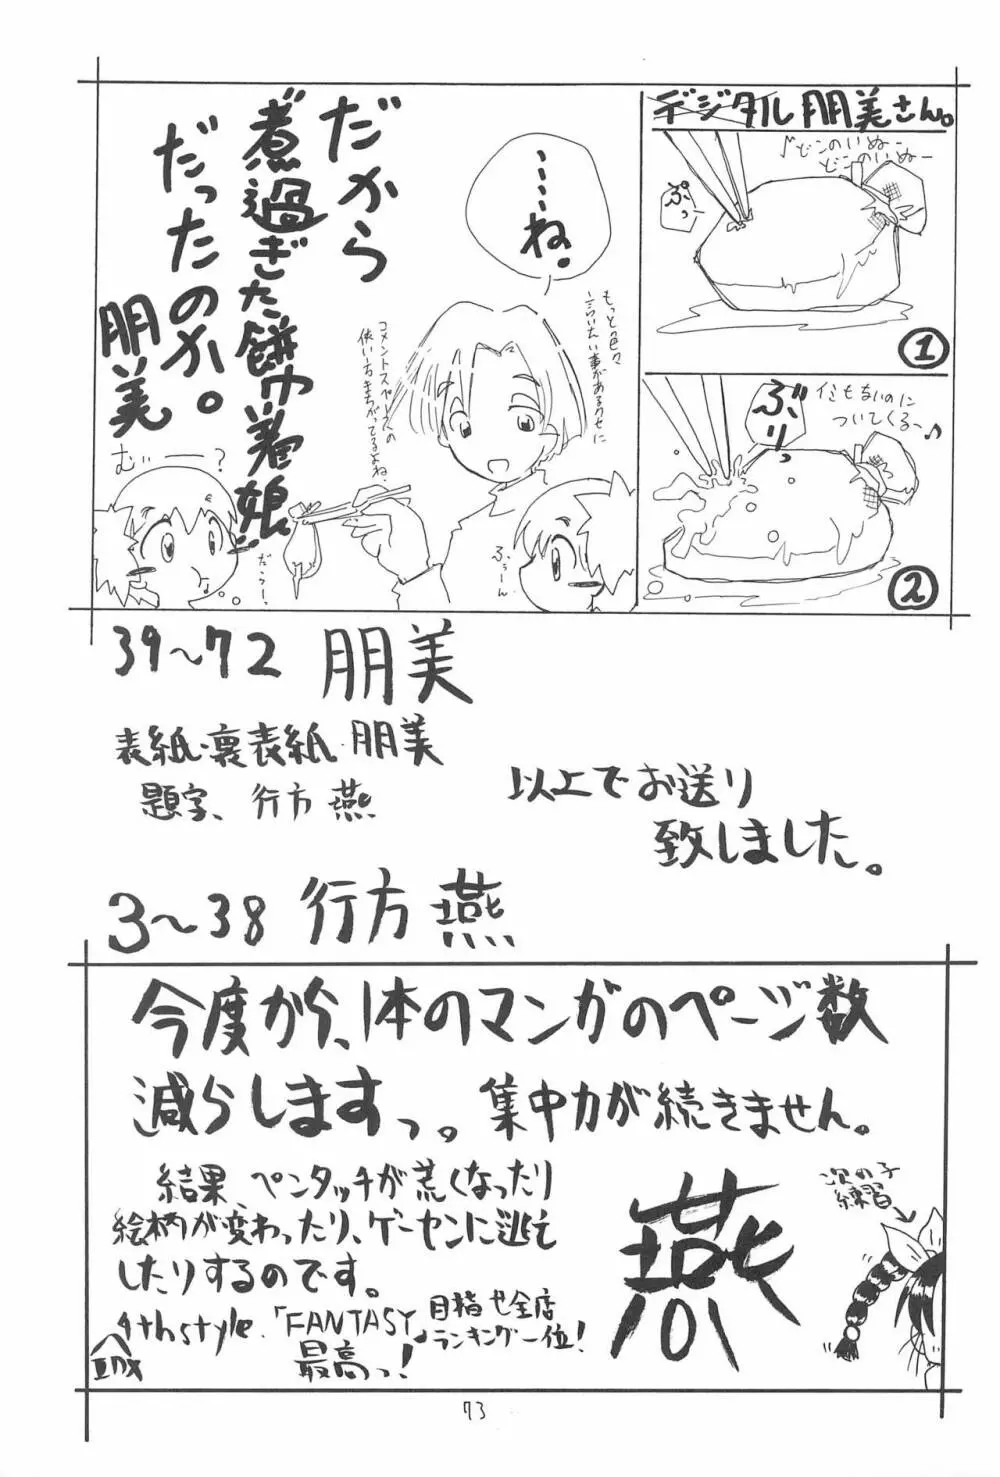 デジタル朋美さん。
♪ビンのいぬー
ビンのいぬー
ぷっ
1
ぶりっ
イミもないのに
ついてくるー♪
2
……ね。
もっとの色々
言いたい事があるクセに
コメントスペースの
使い方まちがてるよね。
だから
煮過ぎた餅巾着娘
だったのか。
朋美
むぃー?
ぶぅーん
39〜72 朋美
表紙・裏表紙・朋美
題字、行方 燕
以上でお送り
致しました。
3〜38 行方 燕
今度から、1本のマンガのページ数
減らしますっ。集中力が続きません。
結果、ペンタッチが荒くなったり
絵柄が変わったり、ゲーセンに逃避
したりするのです。
IIDX 4thstyle.「FANTASY」
最高っ!
目指せ全店
ランキング一位!
燕
次の子
練習
73